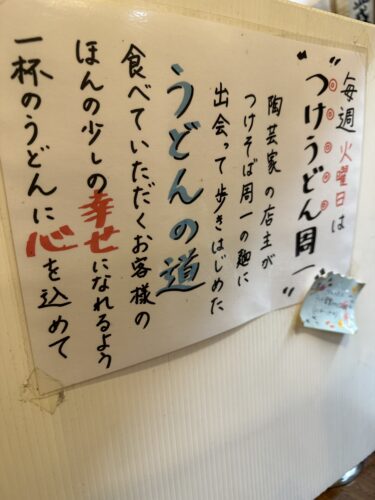 毎週火曜日は
"つけうどん周一"
陶芸家の店主が
つけそば周一の麺に
出会って歩きはじめた
うどんの道
食べていただくお客様の
ほんの少しの幸せになれるよう
一杯のうどんに心を込めて